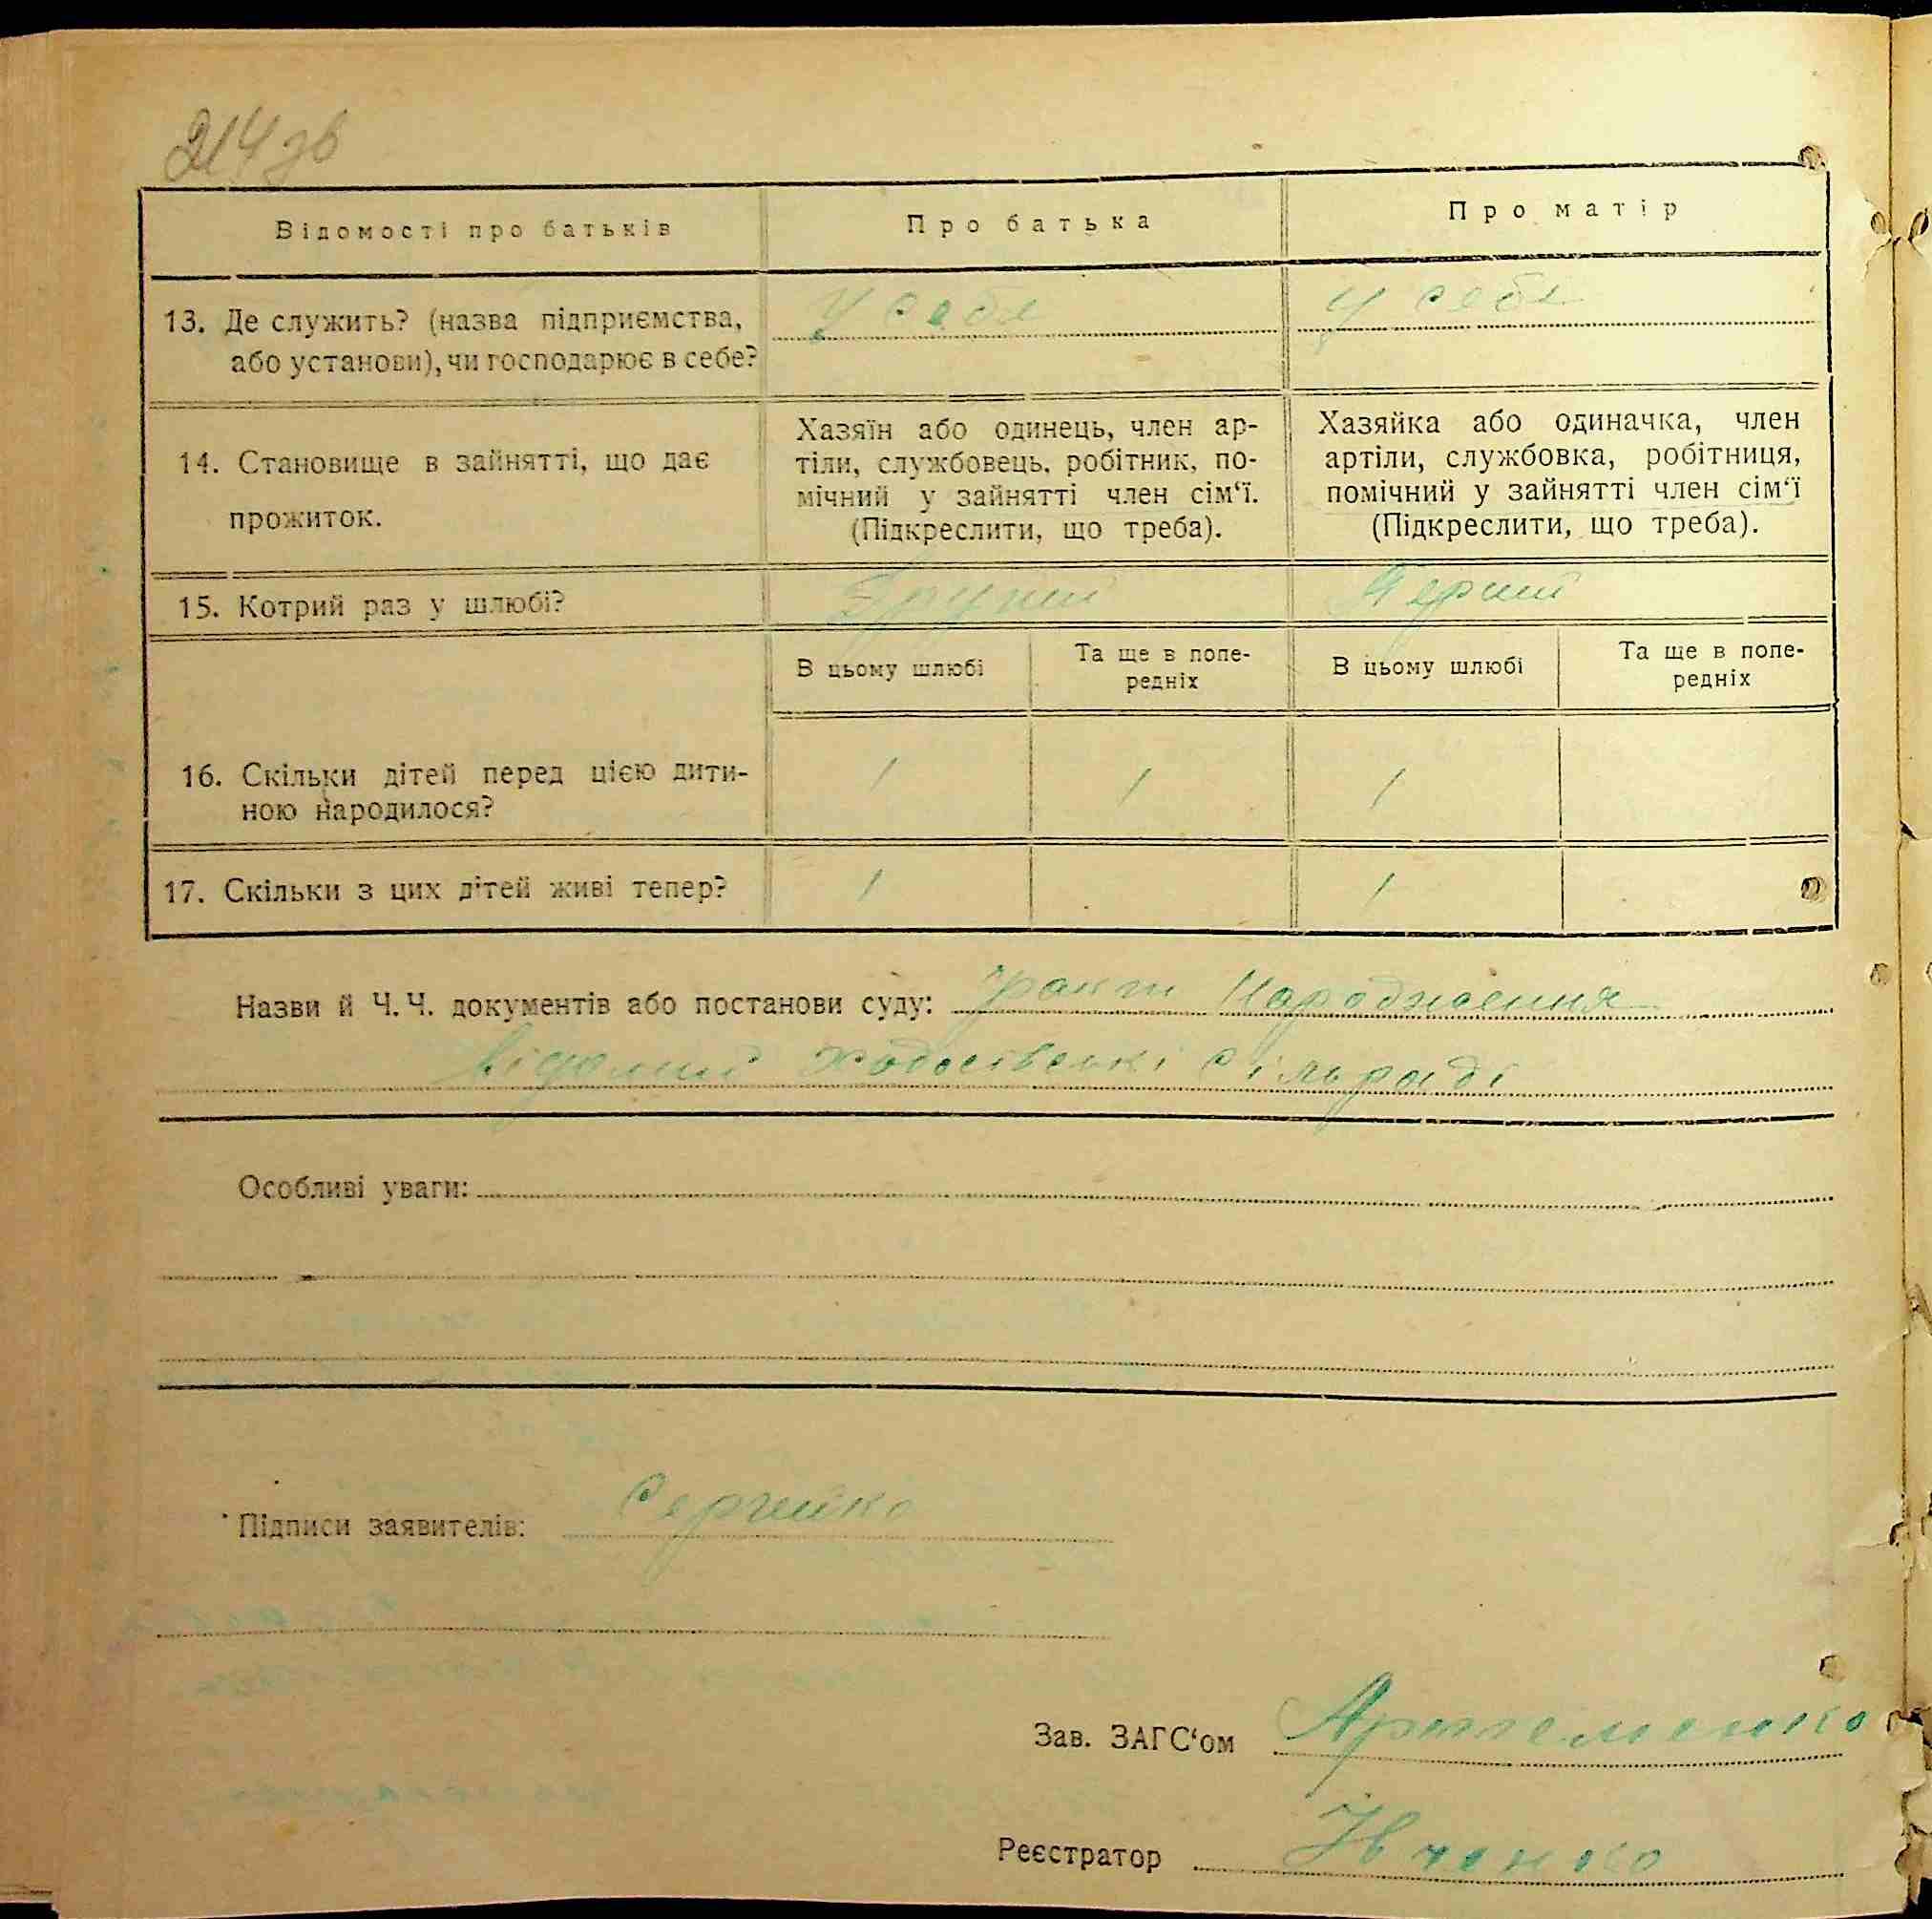 214 зв
Відомості про батьків
Про батька
Про матір
13. Де служить? (назва підприємства,
або установи), чи господарює в себе?
У себе
У себе
14. Становище в зайнятті, що дає
прожиток.
Хазяїн або одинець, член ар-
тіли, службовець, робітник, по-
мічний у зайнятті член сім‘ї.
(Підкреслити, що треба).
Хазяйка або одиначка, член
артіли, службовка, робітниця,
помічний у зайнятті член сім‘ї
(Підкреслити, що треба).
15. Котрий раз у шлюбі?
Другий
Перший
В цьому шлюбі
Та ще в попе-
редніх
В цьому шлюбі
Та ще в попе-
редніх
16. Скільки дітей перед цією дити-
ною народилося?
1
1
1
17. Скільки з цих дітей живі тепер?
1
1
Назви й Ч.Ч. документів або постанови суду: Факт Народження
відомий Ходосівські сільраді
Особливі уваги:
Підписи заявителів: Сергієнко
Зав. ЗАГС‘ом Артеменко
Реєстратор Івченко